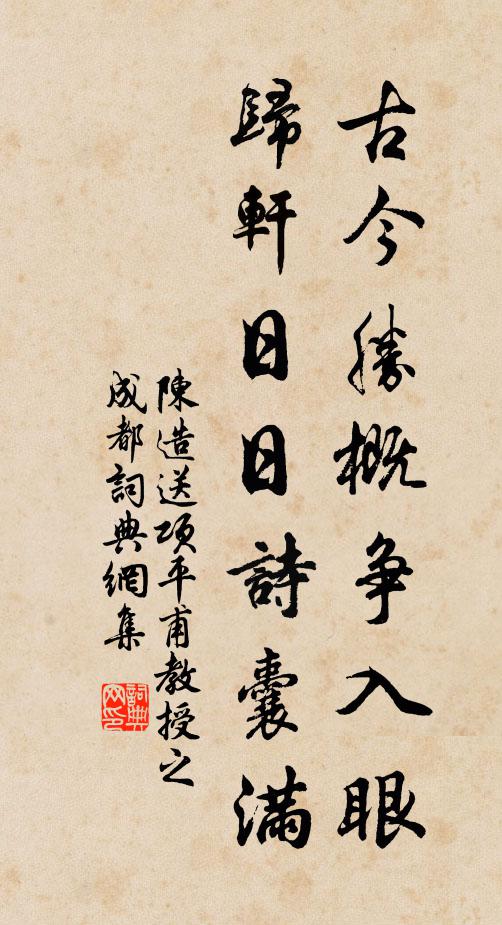 古今勝概争入眼
歸軒日日詩囊滿
陳造送項平甫教授之
成都詞典網集
詞典网印